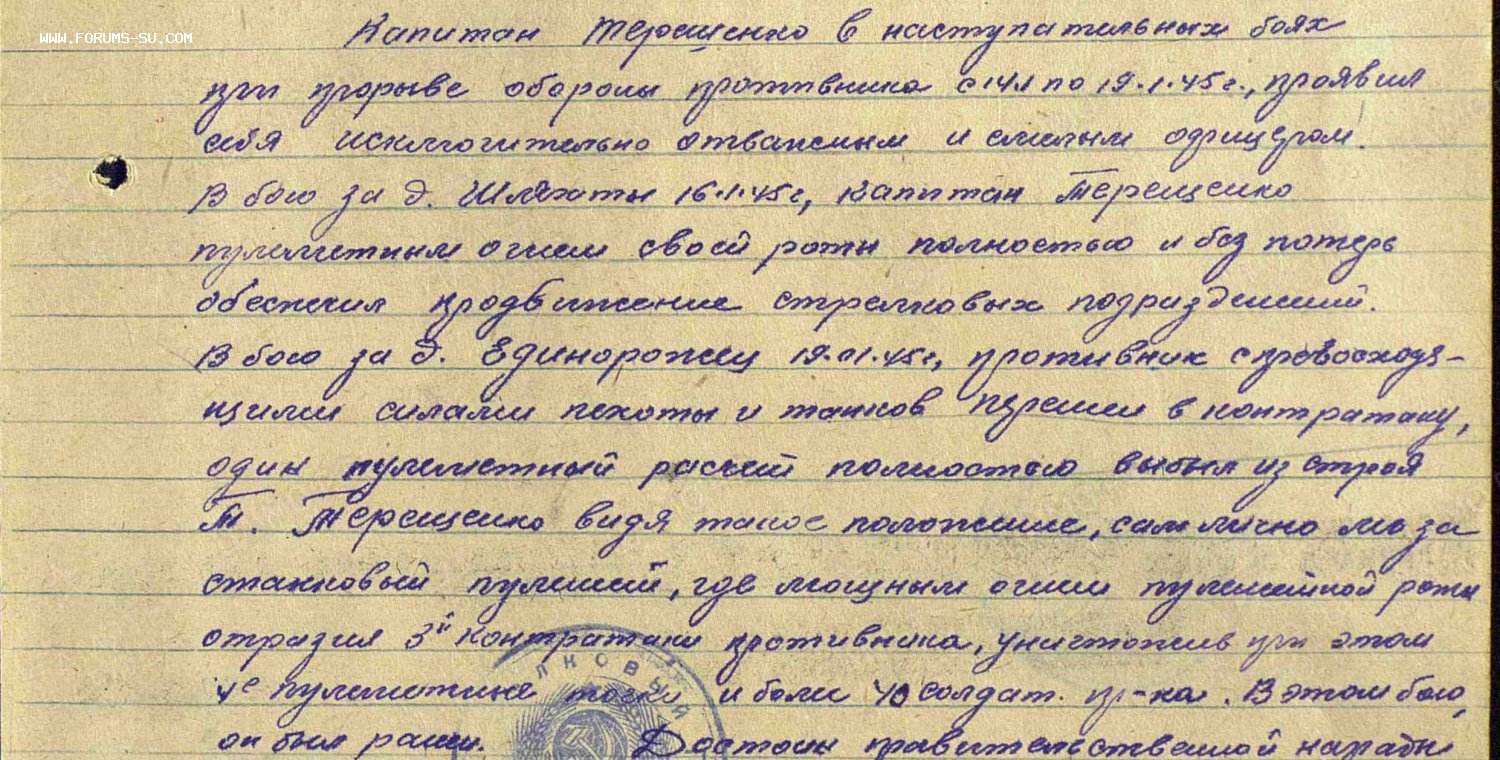 WWW.FORUMS-SU.COM
Капитан Терещенко в наступательных боях
при прорыве обороны противника с 14.1 по 19.1.45г., проявил
себя исключительно отважным и смелым офицером.
В бою за д. Шляхоты 16.1.45г, капитан Терещенко
пулеметным огнем своей роты полностью и без потерь
обеспечил продвижение стрелковых подразделений.
В бою за д. Единорожец 19.01.45г, противник с превосходя-
щими силами пехоты и танков перешел в контратаку,
один пулеметный расчет полностью выбыл из строя
Т. Терещенко видя такое положение, сам лично лег за
станковый пулемет, где мощным огнем пулеметной роты
отразил 3й контратаки противника, уничтожив при этом
4е пулеметные точки и более 40 солдат. пр-ка. В этом бою,
он был ранен. Достоин правительственной награды
ЛКОВЫЙ